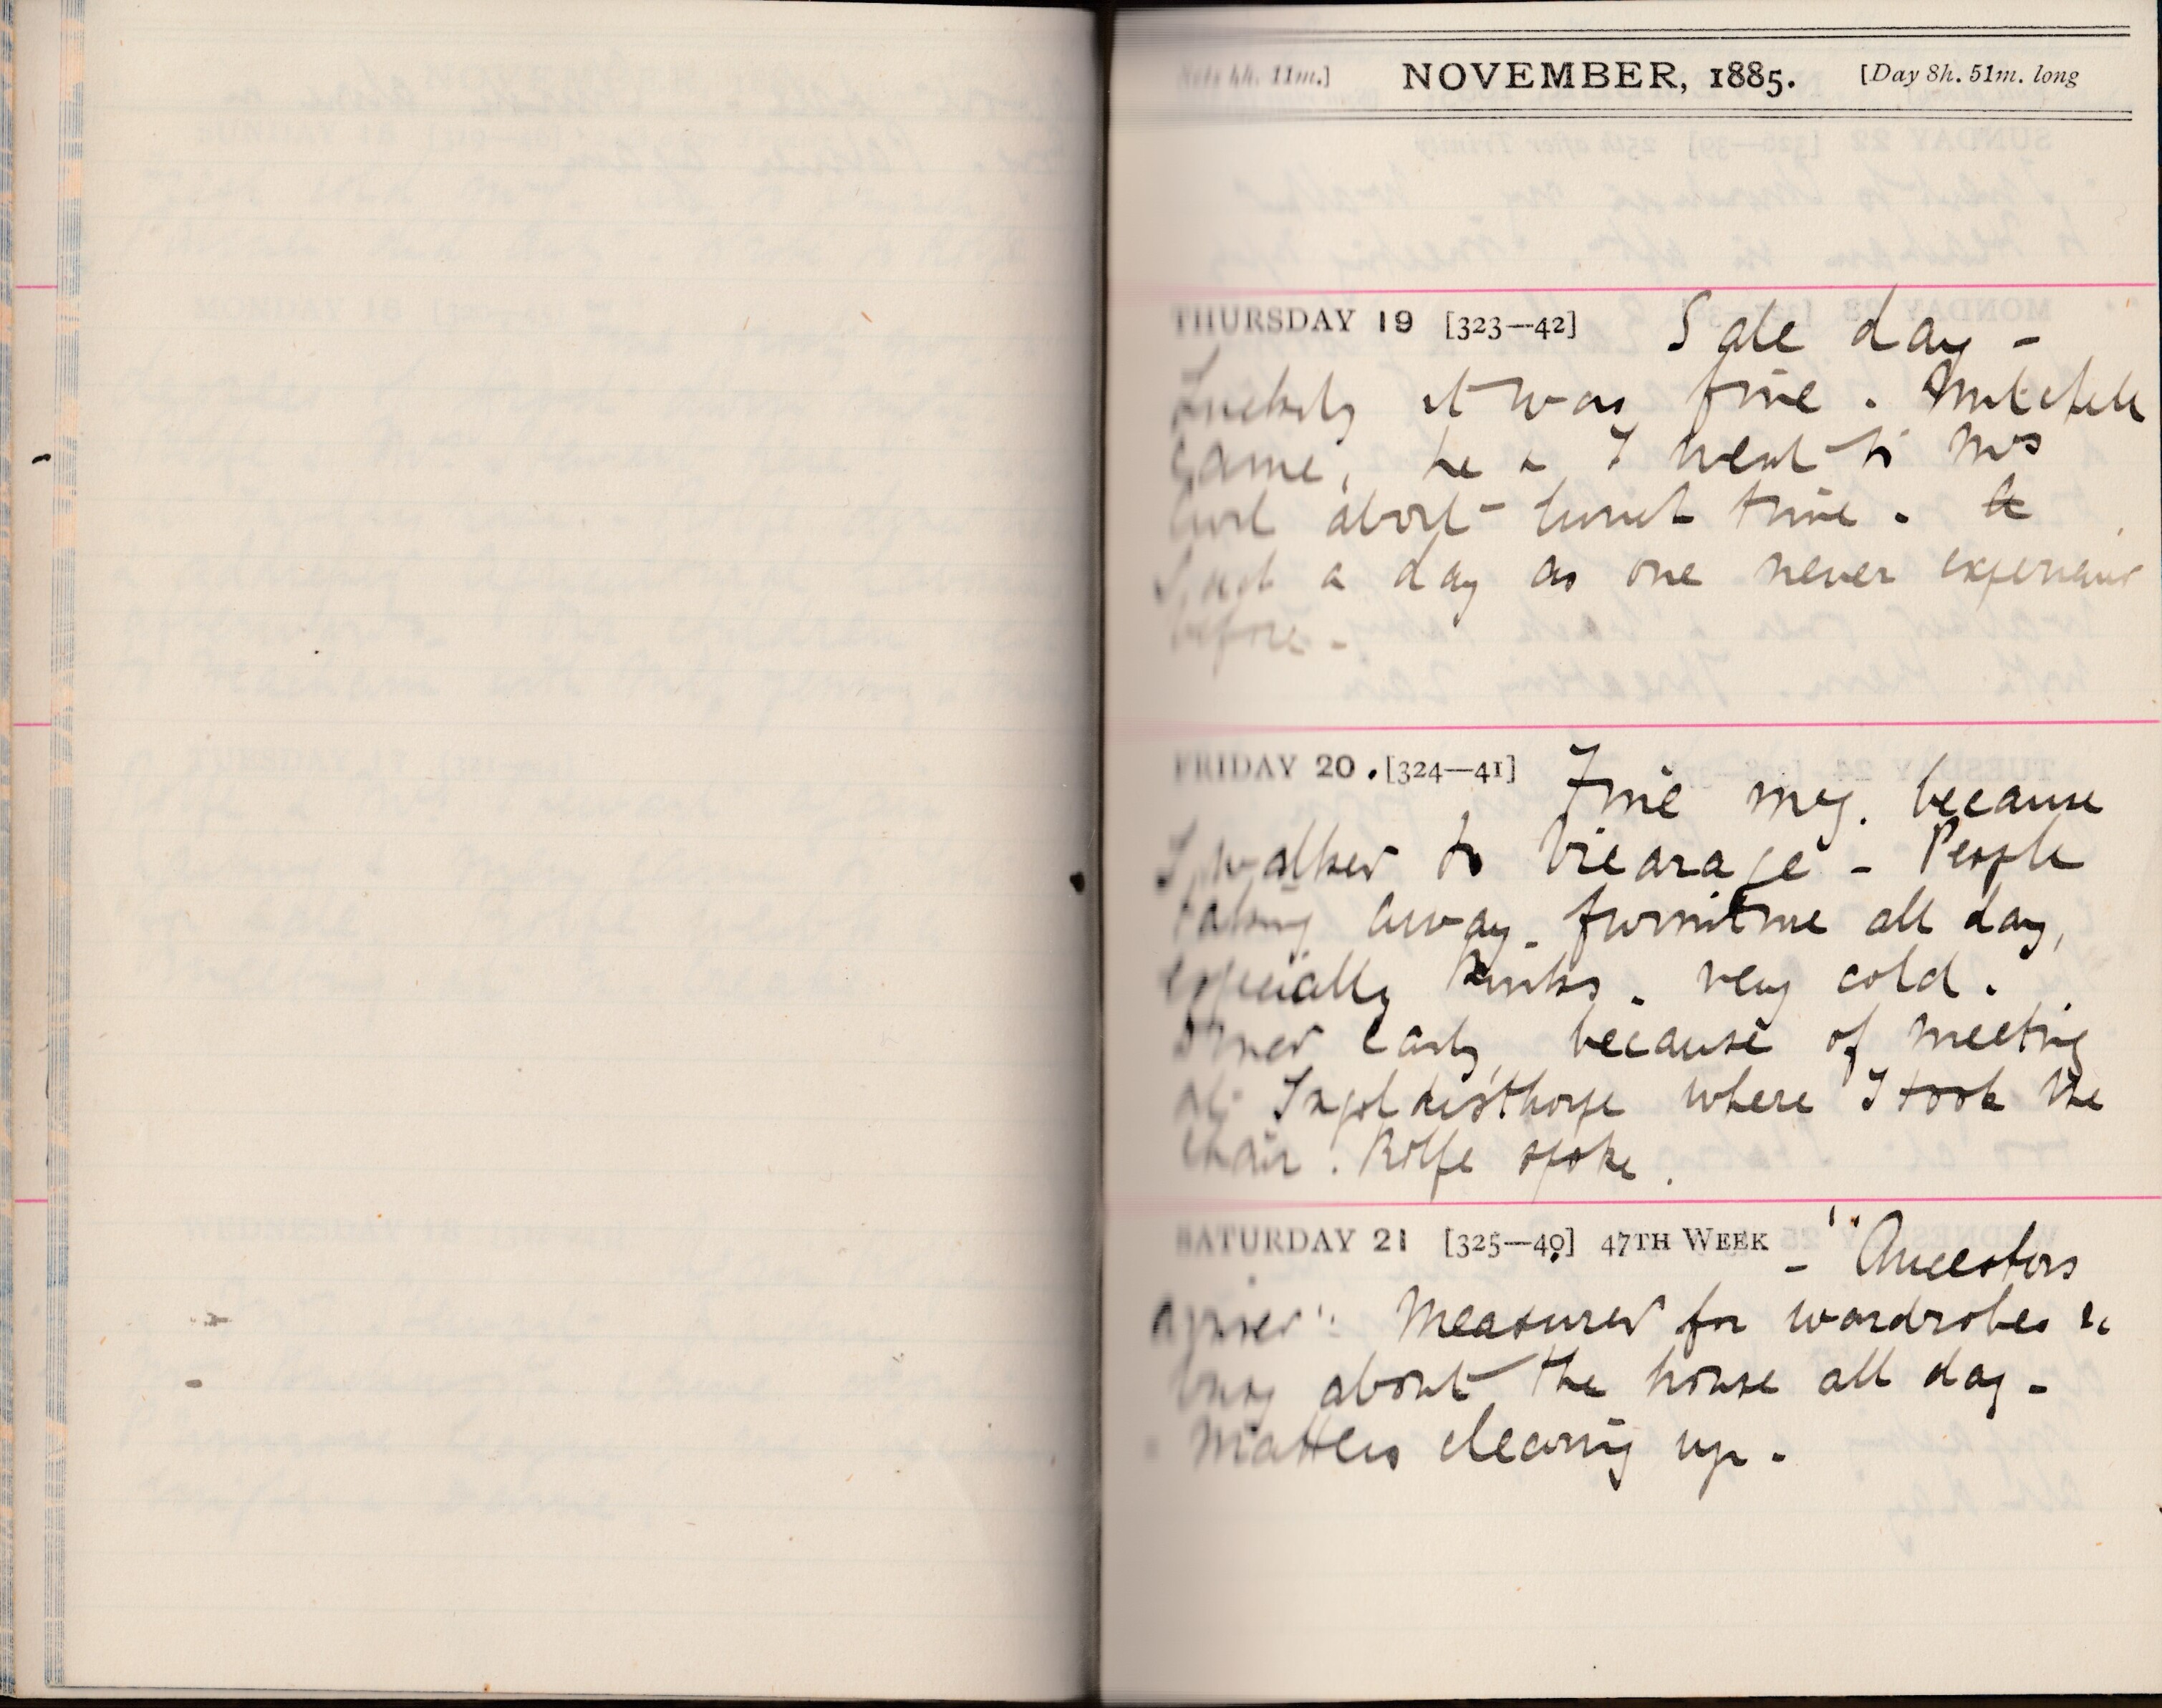 Sets 4h. 11m.] NOVEMBER, 1885. [Day 8h. 51m. long
THURSDAY 19 [323—42] Sale day -
Luckily it was fine. Mitchell
came, he & I went to Mrs
about lunch time.
Such a day as one never experienced
before -
FRIDAY 20. [324—41] Fine mg. because
I walked to Vicarage - People
taking away furniture all day,
especially . very cold.
Dined early, because of meeting
at Ingoldisthorpe where I took the
chair. Rolfe spoke.
SATURDAY 21 [325—40] 47TH WEEK - "Ancestors
". Measured for wardrobes &
busy about the house all day -
Matters clearing up -